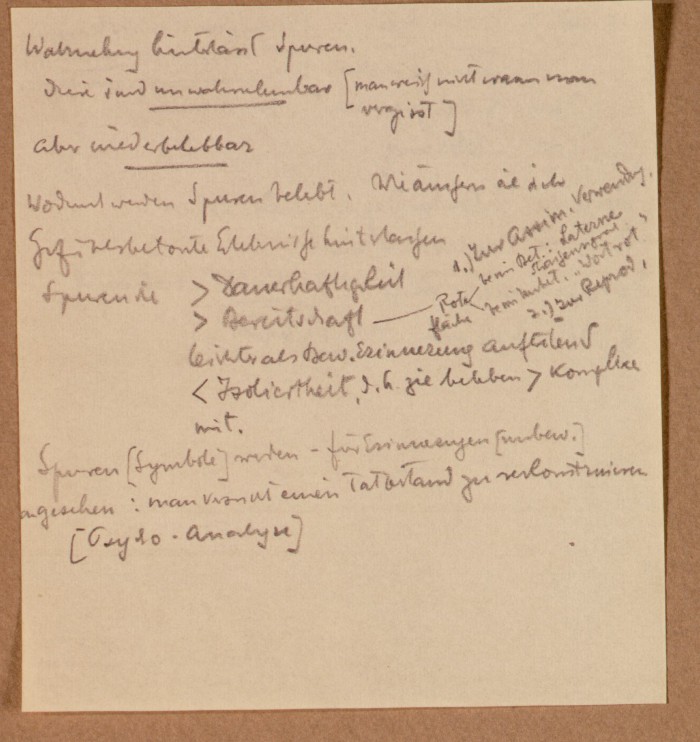 Wahrnehmung hinterlässt Spuren.
diese sind unwahrnehmbar [man weiss nicht wann man
vergisst]
aber wiederbelebbar
Wodurch werden Spuren belebt. Wie äussern sie sich
Gefühlsbetonte Erlebnisse hinterlassen
Spuren die > Dauerhaftigkeit
> Bereitschaft — Rote
fläche
1.) Zur Assim. Verwendg.
beim Det.: Laterne
beim : "Wort rot"
2.) Zur Reprod.
leichter als Bew. Erinnerung auftretend
< Isoliertheit, d.h. sie beleben > Komplexe
mit.
Spuren [Symbole] werden - für Erinnerungen [unbew.]
angesehen: man versucht einen Tatbestand zu rekonstruieren
[Psycho-Analyse]